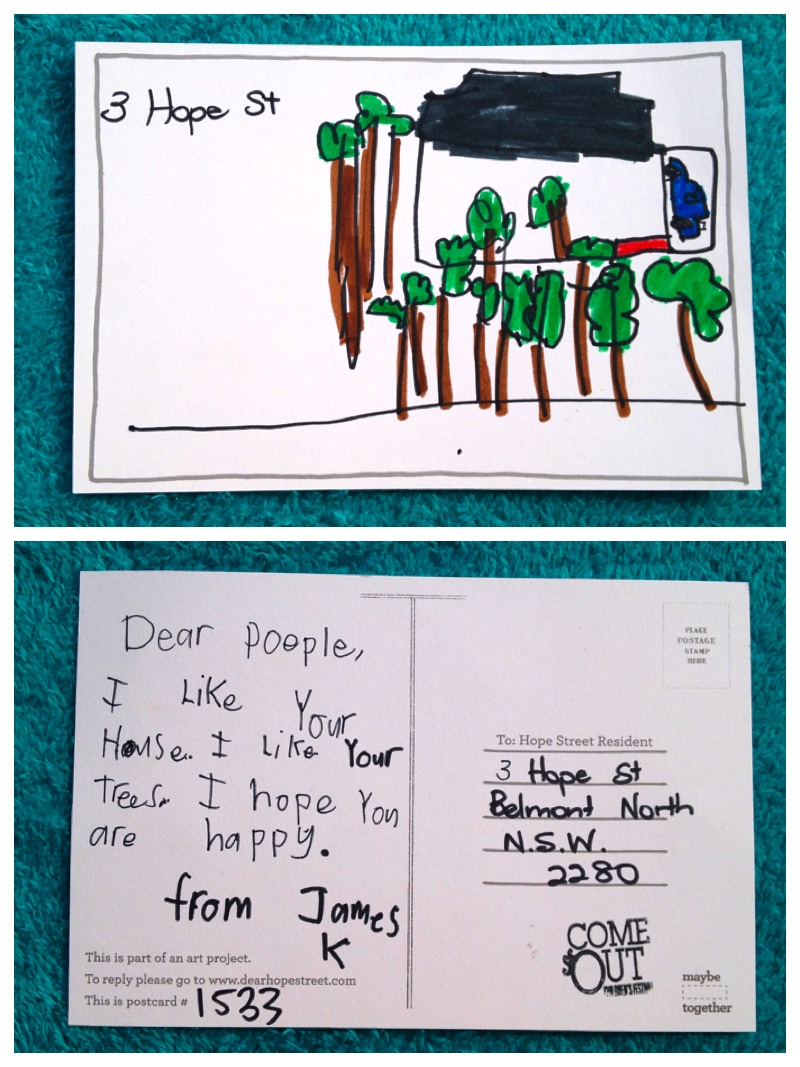 3 Hope St
Dear poeple,
I Like Your
House. I like Your
Trees. I hope You
are happy.
from James
K
This is part of an art project.
To reply please go to www.dearhopestreet.com
This is postcard # 1533
PLACE
POSTAGE
STAMP
HERE
To: Hope Street Resident
3 Hope St
Belmont North
N.S.W.
2280
COME
OUT
CHILDREN'S FESTIVAL
maybe
together